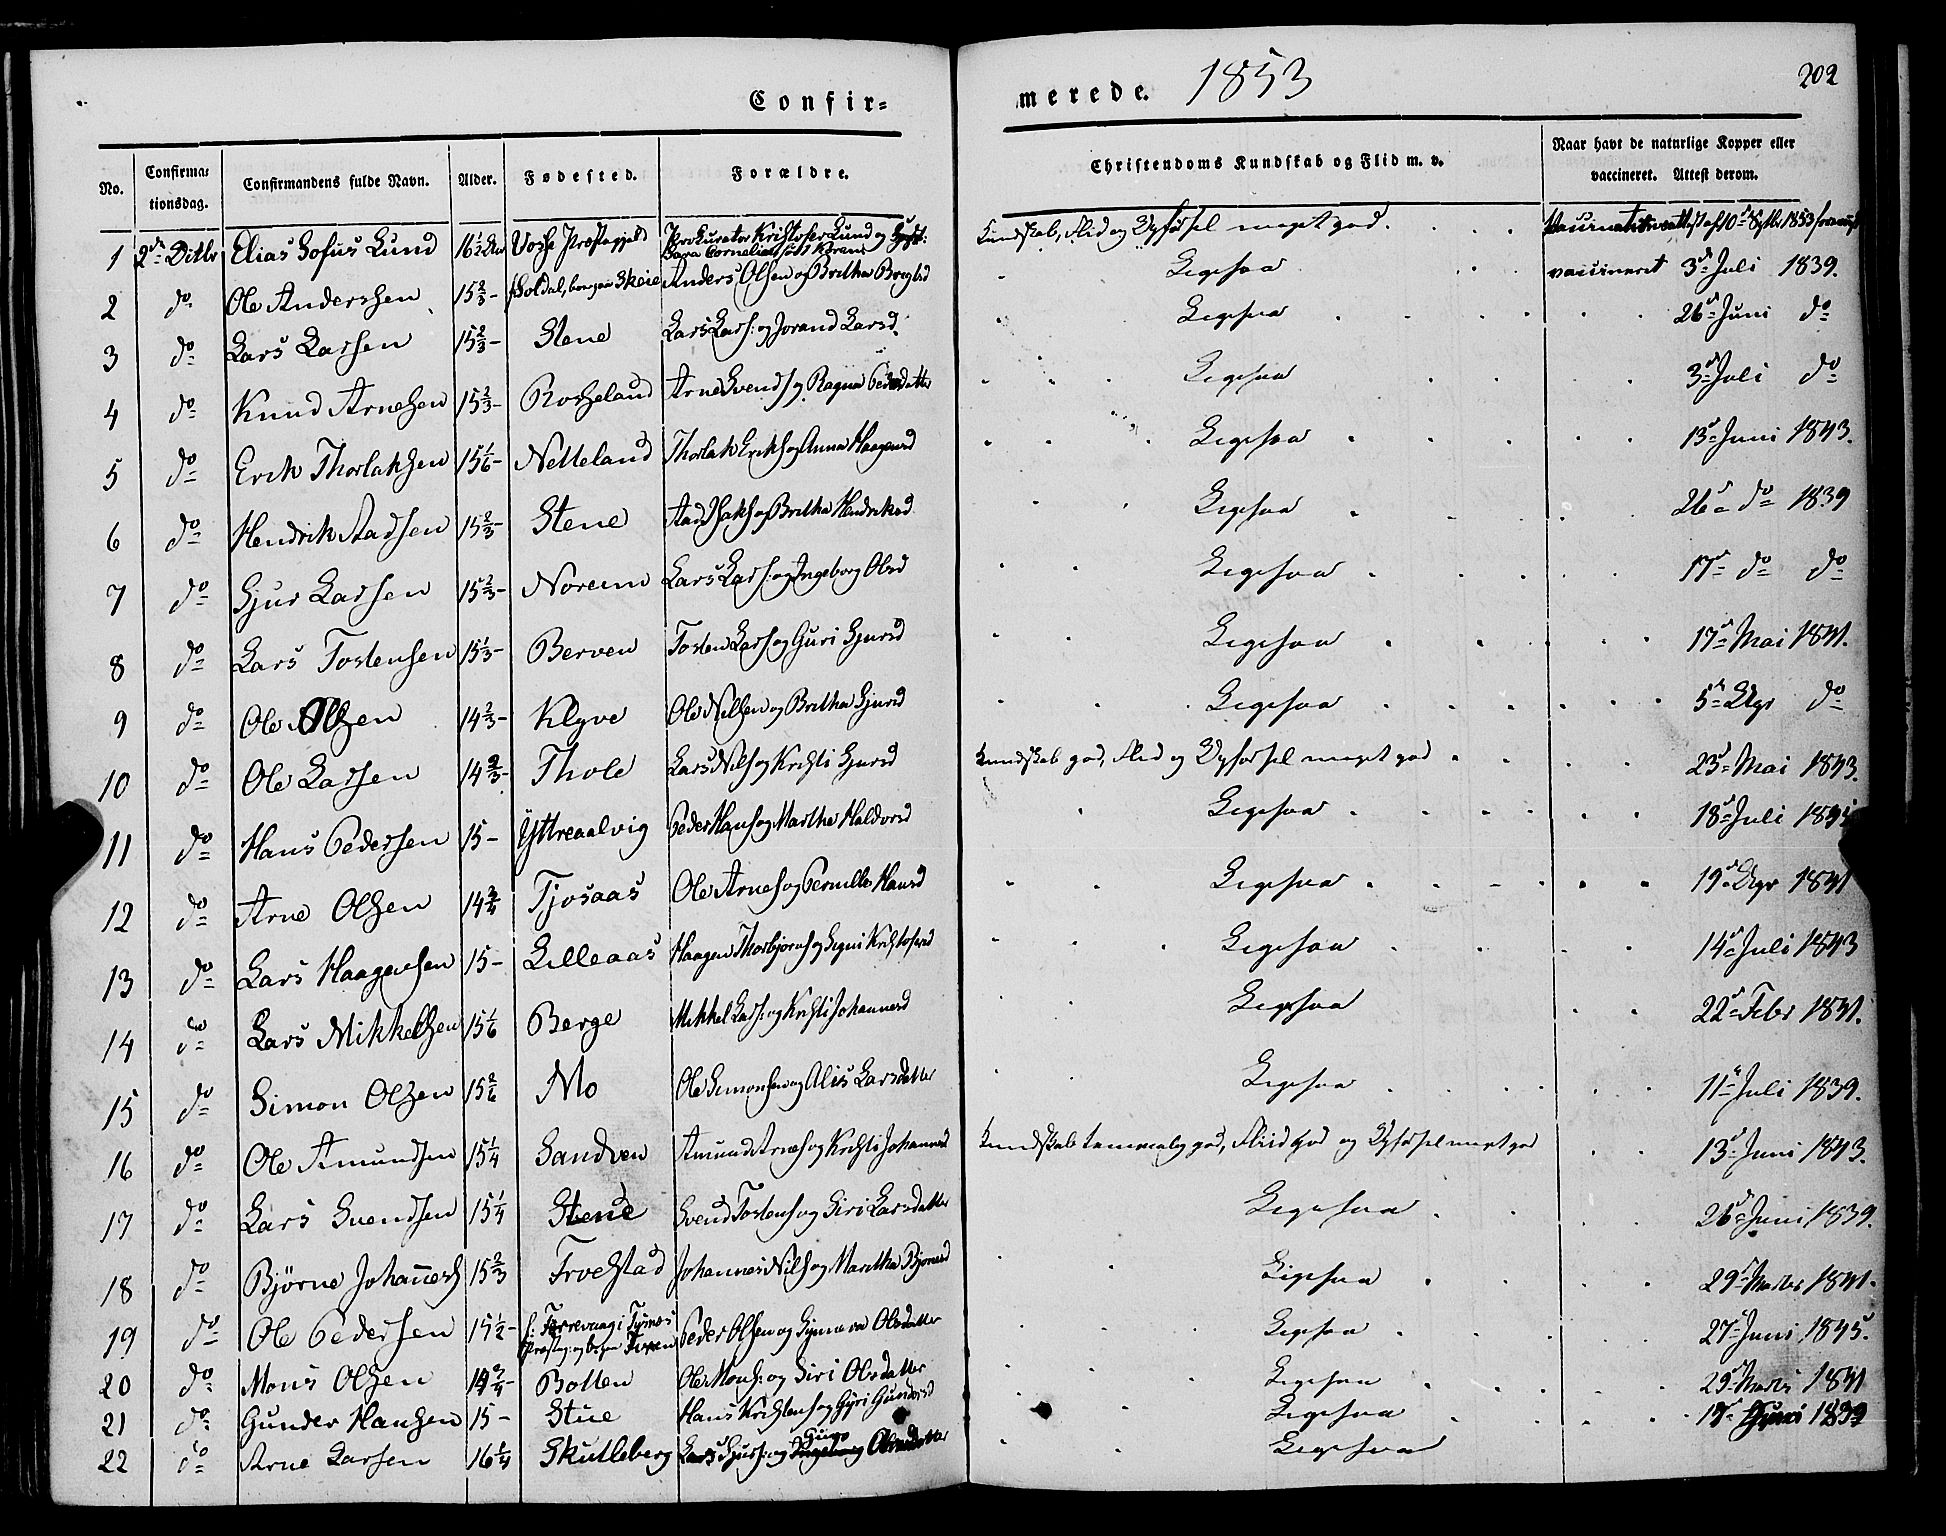 Confir=
merede. 1853
202
No.
Confirma=
tionsdag.
Confirmandens fulde Navn.
Alder.
Fødested.
Forældre.
Christendoms Kundskab og Flid m. v.
Naar havt de naturlige Kopper eller
vaccineret. Attest derom.
1 2d Oktbr Elias Sofus Lund 16 1/2 Voss Præstegjeld Prokurator Kristofer Lund og Kundskab, Flid og Opførsel meget god. Vaccinationsattest af 10d Septbr 1853
2 do Ole Anderssen 15 2/3 Anders Olsen og Britha Ligesaa vaccineret 3d Juli 1839.
3 do Lars Larsen 15 2/3 Stene Lars Lars: og Jorand Larsd. Ligesaa 26d Juni do
4 do Knud Arnesen 15 2/3 Rosseland Arne Svends og Ragna Pedersdatter Ligesaa 3d Juli do
5 do Erik Thorlaksen 15 1/6 Netteland Thorlak Eriks og Anna Haagensd Ligesaa 13d Juni 1843.
6 do Hendrik Aadsen 15 2/3 Stene Aad Isaks og Britha Hendriksd Ligesaa 26d do 1839
7 do Sjur Larsen 15 2/3 Noreim Lars Lars: og Ingeborg Olsd Ligesaa 17d do do
8 do Lars Tostensen 15 1/3 Berven Tosten Lars og Guri Sjursd Ligesaa 17d Mai 1841.
9 do Ole Olsen 14 2/3 Klyve Ole Nilsen og Britha Sjursd Ligesaa 5d do
10 do Ole Larsen 14 2/3 Thole Lars Nils og Kristi Sjursd Kundskab god, Flid og Opførsel meget god 23d Mai 1843.
11 do Hans Pedersen 15 Yttreaalvig Peder Hans og Martha Haldorsd Ligesaa 18d Juli
12 do Arne Olsen 14 3/4 Tjosaas Ole Arnes og Pernille Hansd Ligesaa 19d 1841
13 do Lars Haagensen 15 Lilleaas Haagen Thorbjørns og Signi Kristofersd Ligesaa 14d Juli 1843
14 do Lars Mikkelsen 15 1/6 Berge Mikkel Lars: og Kristi Johannesd Ligesaa 22d Febr 1841.
15 do Simon Olsen 15 2/6 Mo Ole Simonsen og Alis Larsdatter Ligesaa 11d Juli 1839.
16 do Ole Amundsen 15 1/4 Sandven Amund Arnes og Kristi Johannesd Kundskab temmelig god, Fliid god og Opførsel meget god 13d Juni 1843.
17 do Lars Svendsen 15 1/4 Stene Svend Tostens og Siri Larsdatter Ligesaa 26d Juni 1839.
18 do Bjørne Johanness 15 2/3 Johannes Nils og Maritha Bjørnesd Ligesaa 29d Marts 1841.
19 do Ole Pedersen 15 1/2 Peder Olsen og Synneve Olsdatter Ligesaa 27d Juni 1845.
20 do Mons Olsen 14 3/4 Botten Ole Mons: og Siri Olsdatter Ligesaa 29d Marts 1841
21 do Gunder Hansen 15 Stue Hans Kristens og Gyri Gundersd Ligesaa Juni 1839
22 do Arne Larsen 16 1/4 Skutleberg Lars Sjurs: og Olsdatter Ligesaa